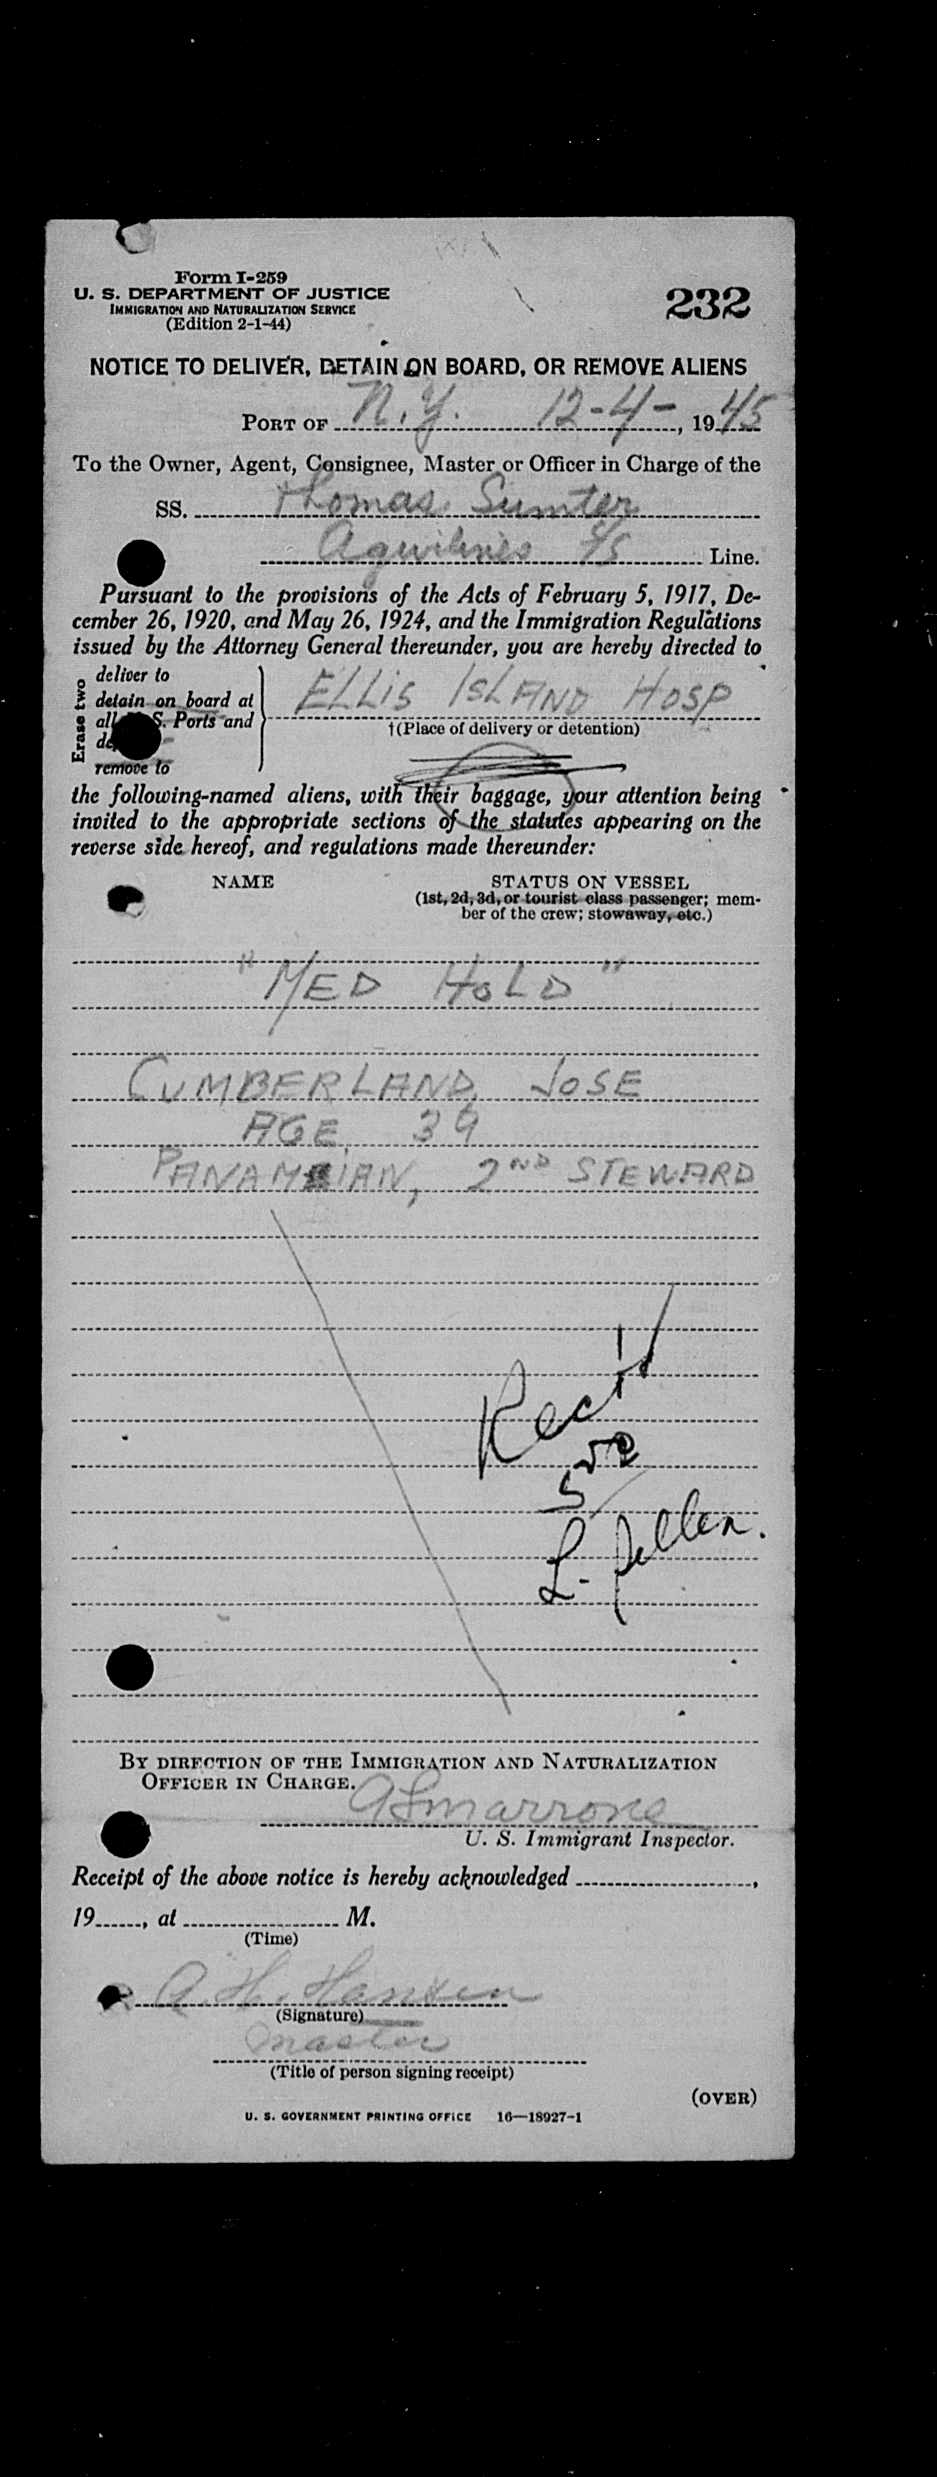 Form I-259
U. S. DEPARTMENT OF JUSTICE
IMMIGRATION AND NATURALIZATION SERVICE
(Edition 2-1-44)
232
NOTICE TO DELIVER, DETAIN ON BOARD, OR REMOVE ALIENS
PORT OF N.Y. 12-4-, 1945
To the Owner, Agent, Consignee, Master or Officer in Charge of the
SS. Thomas Sumter
Line.
Pursuant to the provisions of the Acts of February 5, 1917, De-
cember 26, 1920, and May 26, 1924, and the Immigration Regulations
issued by the Attorney General thereunder, you are hereby directed to
Erase two
deliver to
detain on board at
all S. Ports and
remove to
ELLIS ISLAND HOSP
†(Place of delivery or detention)
the following-named aliens, with their baggage, your attention being
invited to the appropriate sections of the statutes appearing on the
reverse side hereof, and regulations made thereunder:
NAME
STATUS ON VESSEL
(1st, 2d, 3d, or tourist class passenger; mem-
ber of the crew; stowaway, etc.)
"MED HOLD"
CUMBERLAND, JOSE
AGE 39
PANAMIAN, 2ND STEWARD
Rec'd
L.
BY DIRECTION OF THE IMMIGRATION AND NATURALIZATION
OFFICER IN CHARGE.
U. S. Immigrant Inspector.
Receipt of the above notice is hereby acknowledged ,
19 , at M.
(Time)
A. H. Hansen
(Signature)
Master
(Title of person signing receipt)
(OVER)
U. S. GOVERNMENT PRINTING OFFICE 16—18927-1